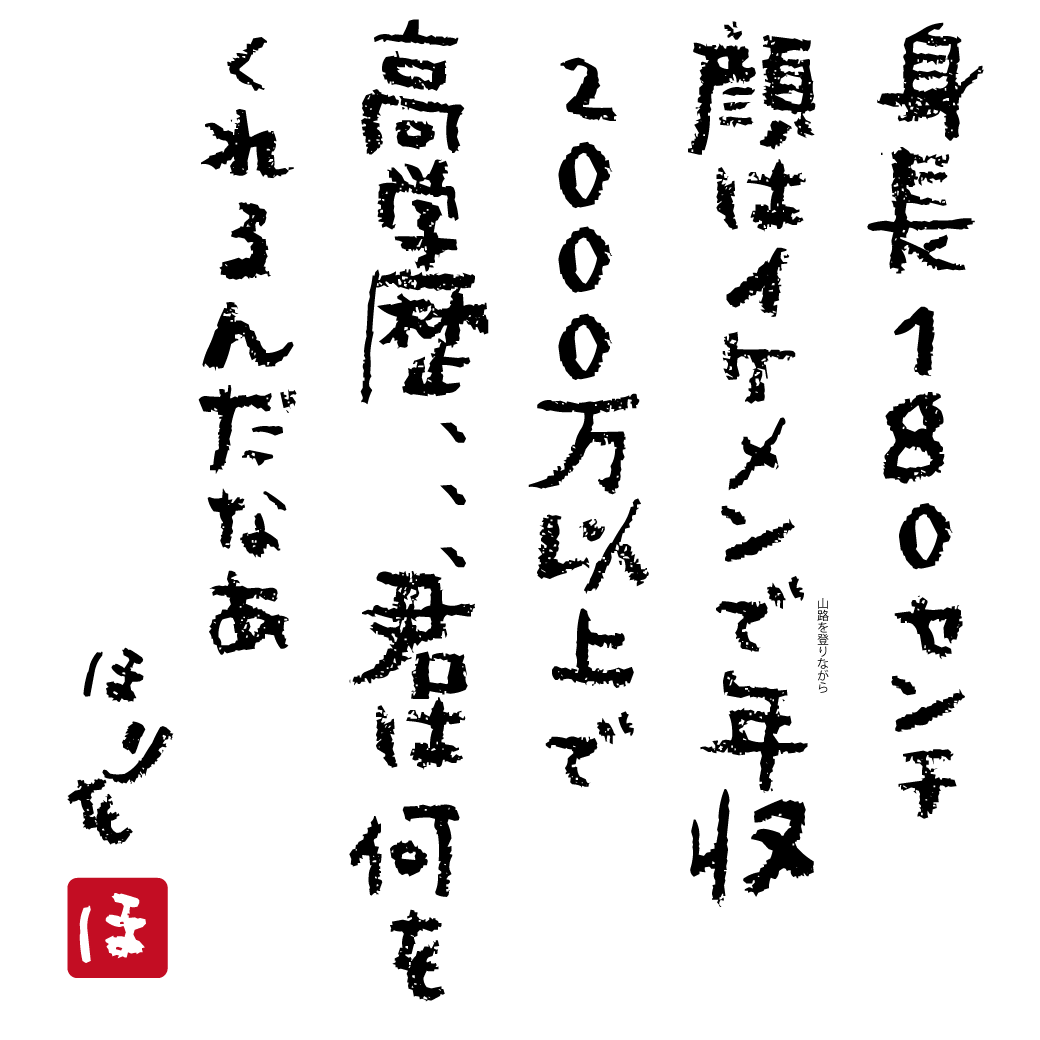 身長180センチ
顔はイケメンで年収
2000万以上で
高学歴、、、君は何を
くれるんだなあ
ほりを
ほ
山路を登りながら